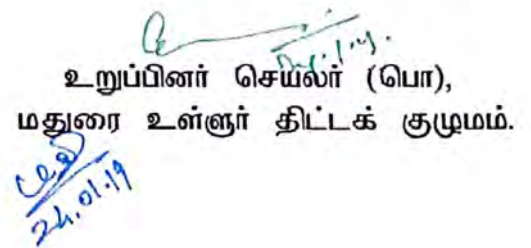 உறுப்பினர் செயலர் (பொ),
மதுரை உள்ளுர் திட்டக் குழுமம்.
24.01.19